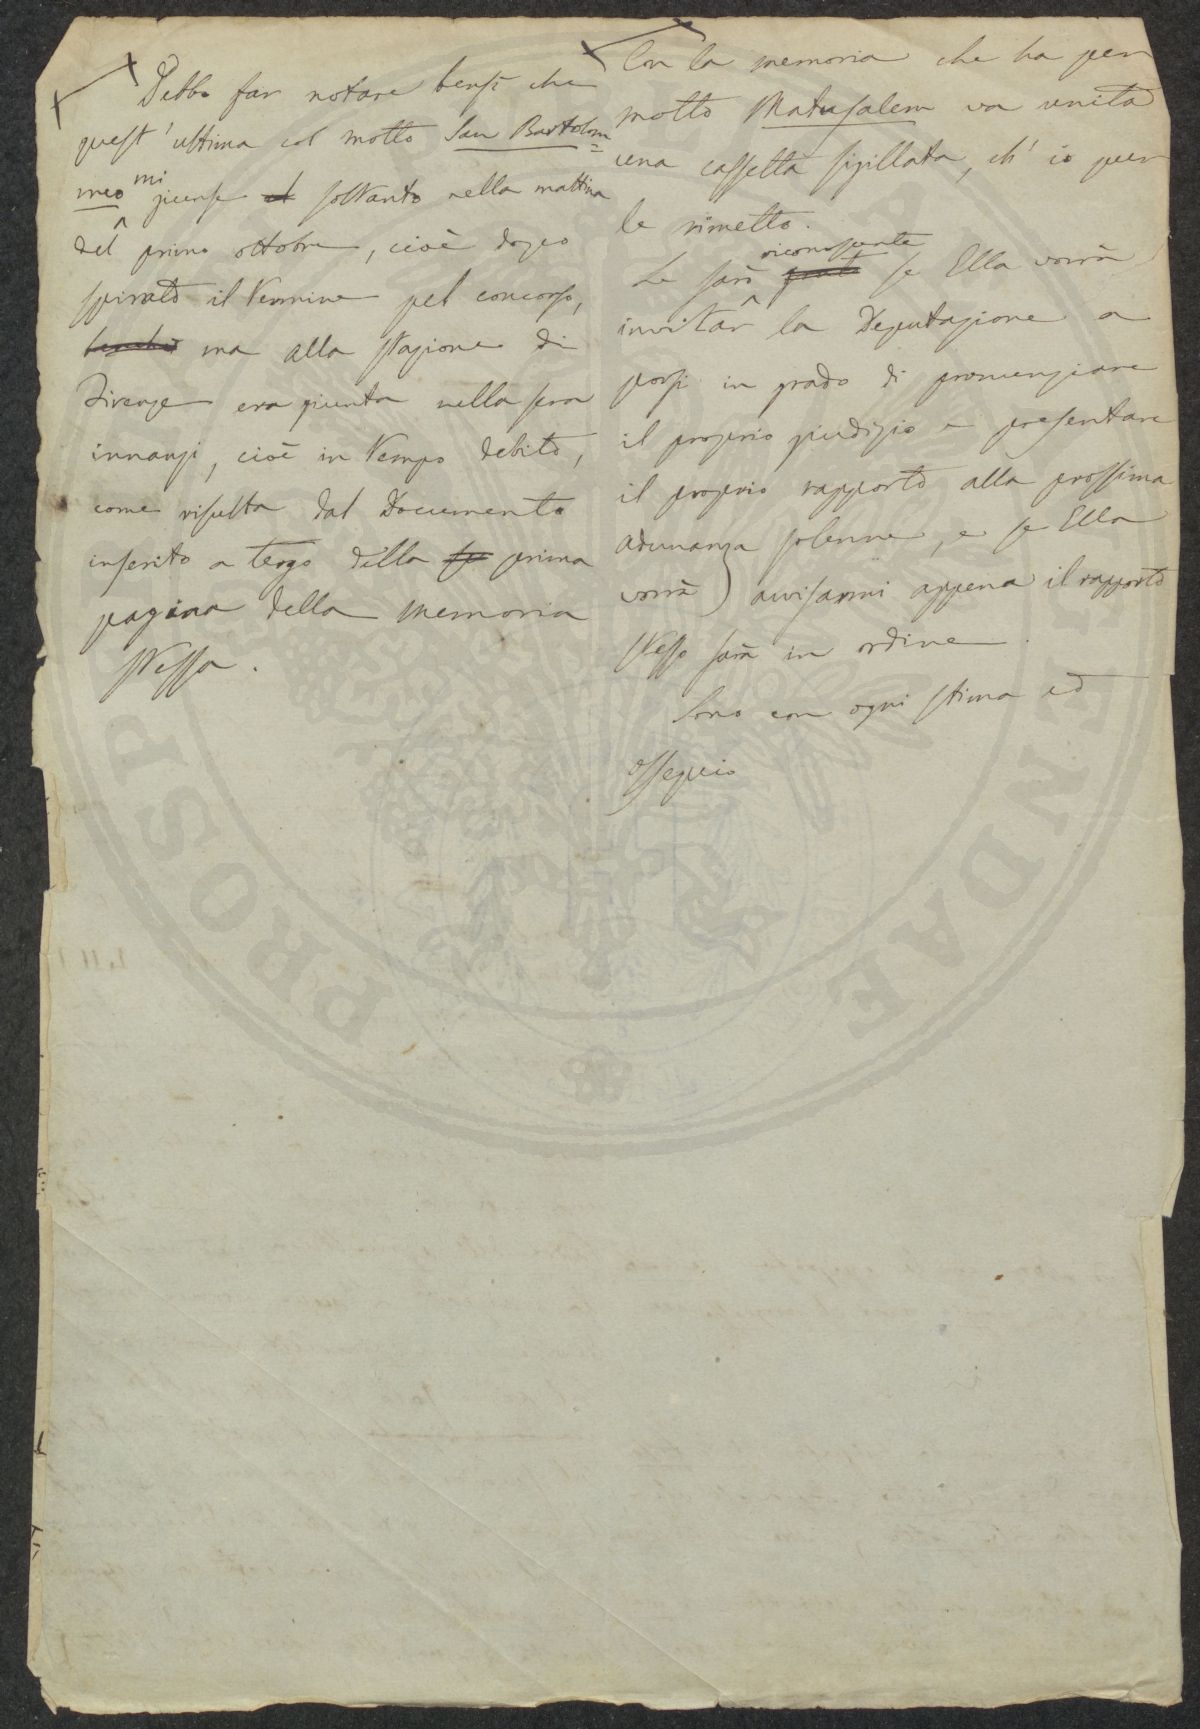 Debbo far notare bensì che
quest'ultima col motto San Bartolom=
meo mi giunse soltanto nella mattina
del primo ottobre, cioè dopo
spirato il termine pel concorso,
benchè ma alla stazione di
Firenze era giunta nella sera
innanzi, cioè in tempo debito,
come risulta dal Documento
inserito a tergo della prima
pagina della memoria
stessa.
Con la memoria che ha per
motto Matusalem va unita
una cassetta sigillata, ch'io pur
le rimetto.
Le sarò riconoscente se Ella vorrà
invitar la Deputazione a
porsi in grado di pronunziare
il proprio giudizio e presentare
il proprio rapporto alla prossima
adunanza solenne, e se Ella
vorrà) avvisarmi appena il rapporto
stesso sarà in ordine.
Sono con ogni stima ed
ossequio
PROSPERITATI AUGENDAE